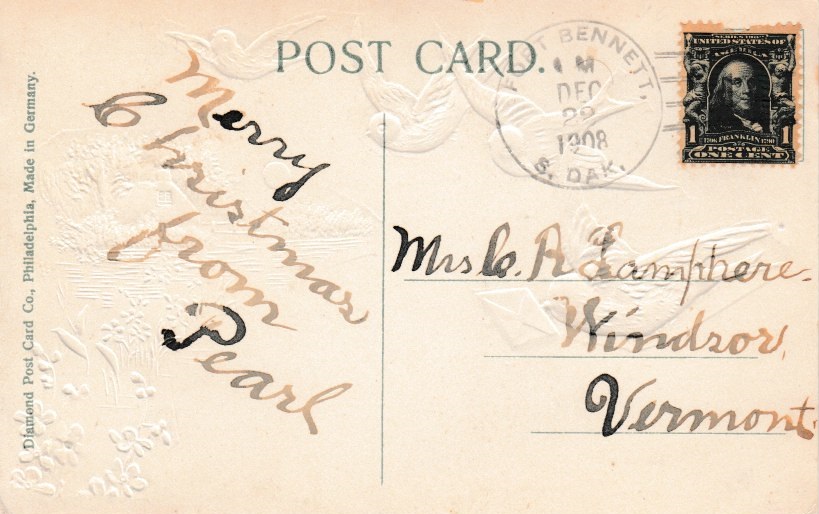 POST CARD.
FORT BENNETT,
M
DEC
22
1908
S. DAK.
SERIES 1902
UNITED STATES OF
AMERICA
1 1706 FRANKLIN 1790 1
POSTAGE
ONE CENT
Merry
Christmas
from
Pearl
Mrs C. A. Lamphere.
Windsor,
Vermont.
Diamond Post Card Co., Philadelphia, Made in Germany.